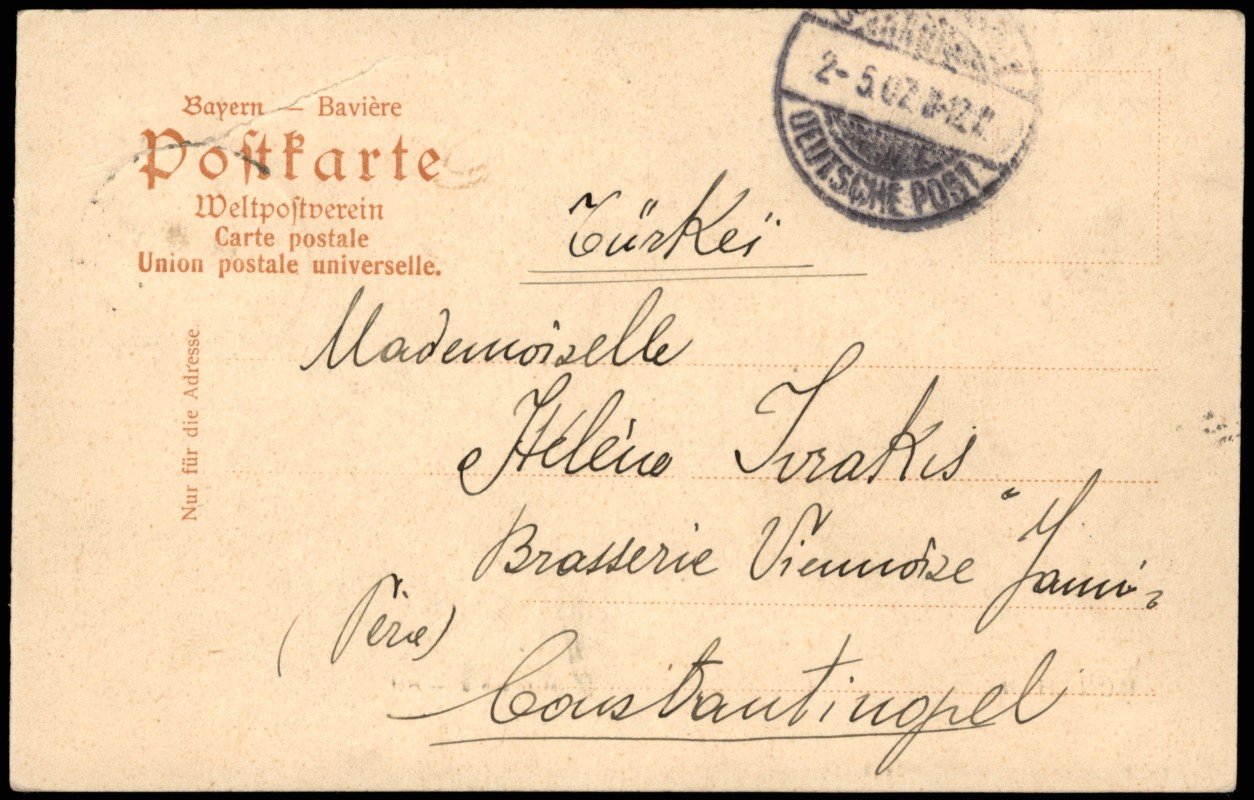 Bayern — Bavière
Postkarte
Weltpostverein
Carte postale
Union postale universelle.
Nur für die Adresse.
2- 5.02
DEUTSCHE POST
Türkei
Mademoiselle
Hélène
Brasserie Viennoise
(Péra)
Constantinopel